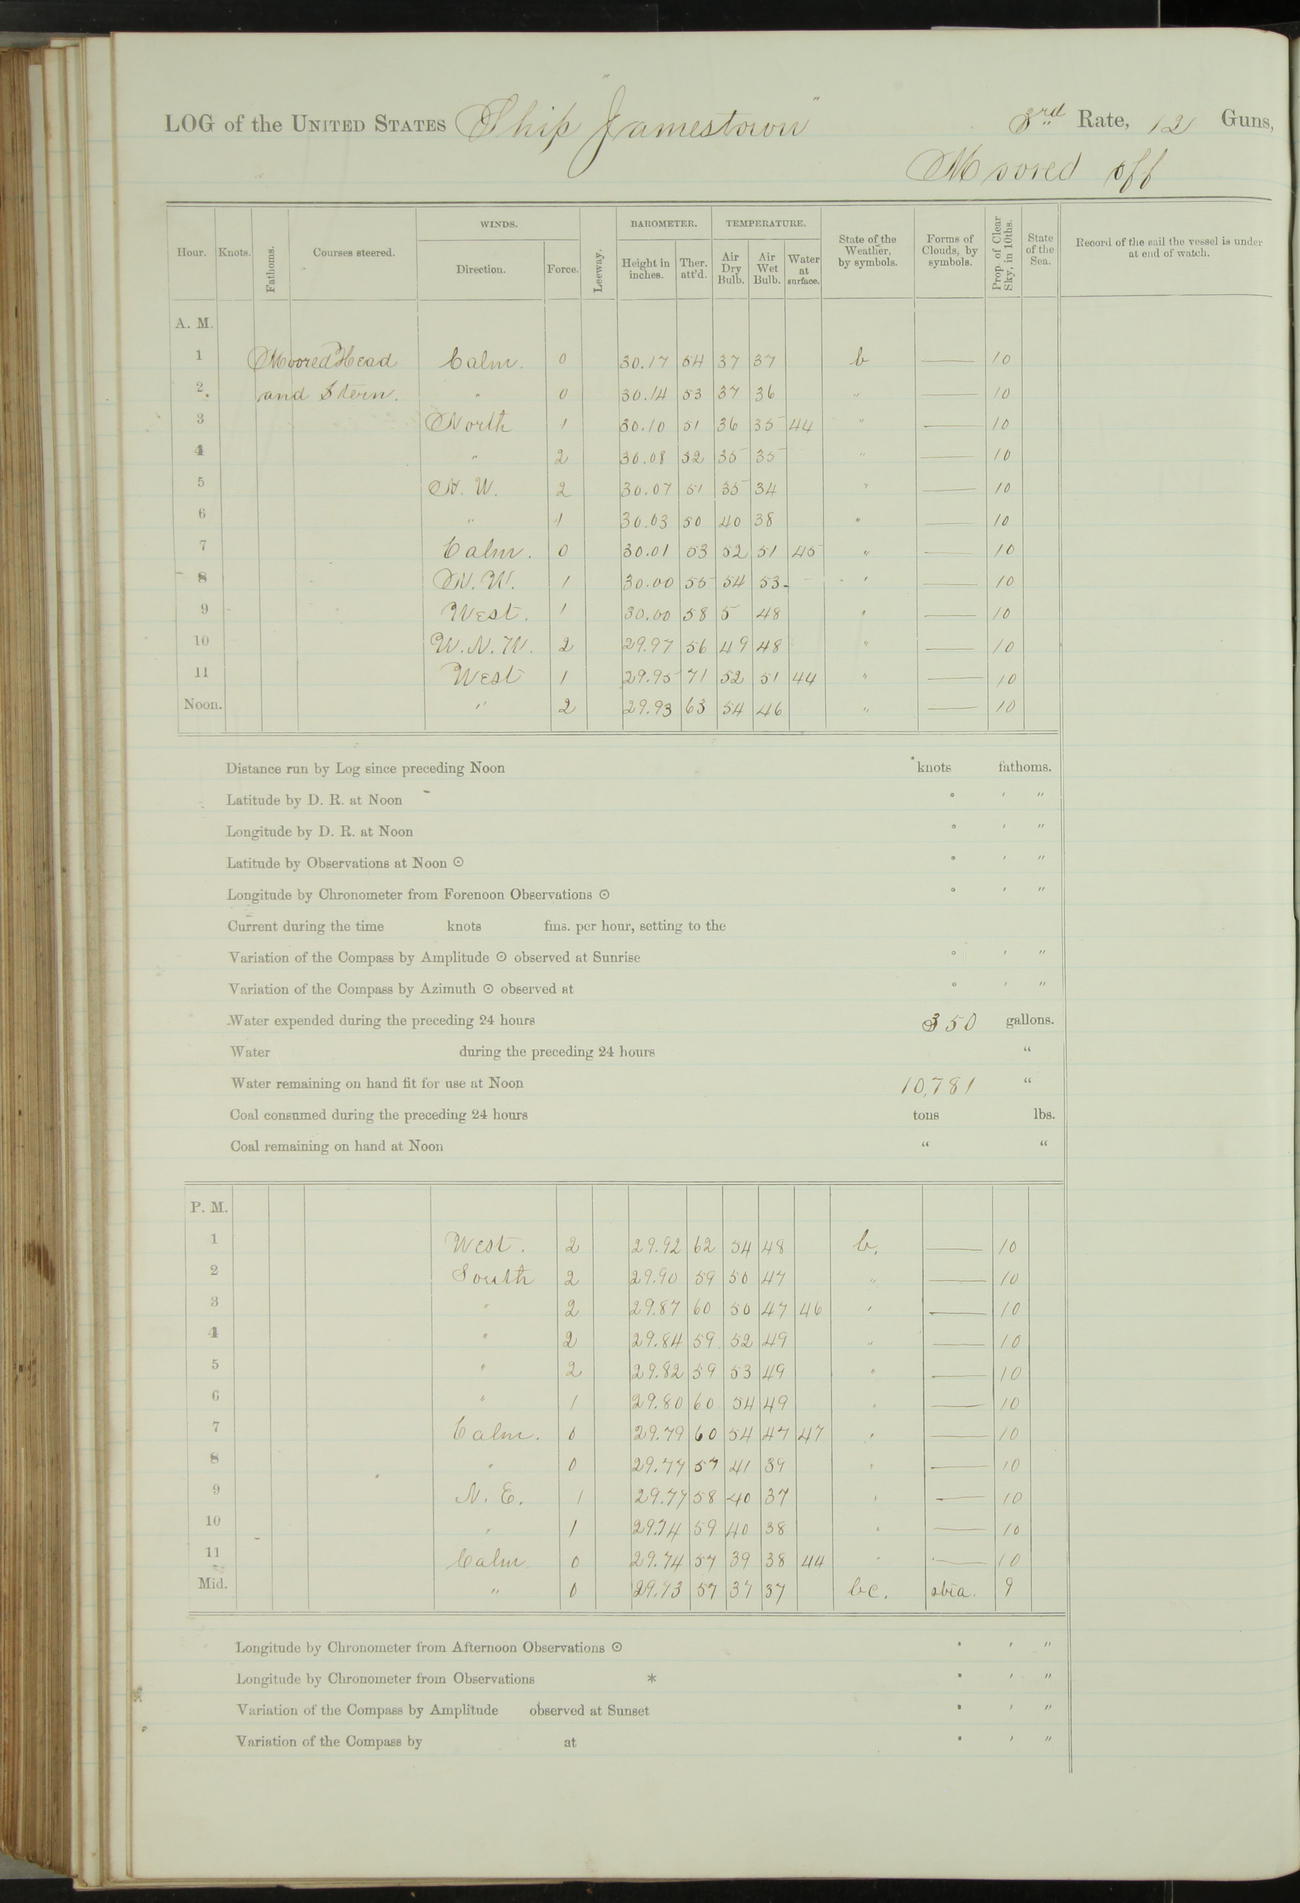 LOG of the UNITED STATES Ship "Jamestown" 3rd Rate, 12 Guns,
Moored off
Hour. Knots. Fathoms. Courses steered. WINDS. Direction. Force. Leeway. BAROMETER. Height in inches. Ther. att'd. TEMPERATURE. Air Dry Bulb. Air Wet Bulb. Water at surface. State of the Weather, by symbols. Forms of Clouds, by symbols. Prop. of Clear Sky, in 10ths. State of the Sea. Record of the sail the vessel is under at end of watch.
A. M.
1 Moored Head Calm. 0 30.17 54 37 37 b — 10
2 and Stern. " 0 30.14 53 37 36 " — 10
3 North 1 30.10 51 36 35 44 " — 10
4 " 2 30.08 52 35 35 " — 10
5 N. W. 2 30.07 51 35 34 " — 10
6 " 1 30.03 50 40 38 " — 10
7 Calm. 0 30.01 53 52 51 45 " — 10
8 N. W. 1 30.00 55 54 53 " — 10
9 West. 1 30.00 58 5 48 " — 10
10 W. N. W. 2 29.97 56 49 48 " — 10
11 West 1 29.95 71 52 51 44 " — 10
Noon. " 2 29.93 63 54 46 " — 10
Distance run by Log since preceding Noon knots fathoms.
Latitude by D. R. at Noon ° ' "
Longitude by D. R. at Noon ° ' "
Latitude by Observations at Noon ⊙ ° ' "
Longitude by Chronometer from Forenoon Observations ⊙ ° ' "
Current during the time knots fms. per hour, setting to the
Variation of the Compass by Amplitude ⊙ observed at Sunrise ° ' "
Variation of the Compass by Azimuth ⊙ observed at ° ' "
Water expended during the preceding 24 hours 350 gallons.
Water during the preceding 24 hours "
Water remaining on hand fit for use at Noon 10,781 "
Coal consumed during the preceding 24 hours tons lbs.
Coal remaining on hand at Noon " "
P. M.
1 West. 2 29.92 62 54 48 b. — 10
2 South 2 29.90 59 50 47 " — 10
3 " 2 29.87 60 50 47 46 " — 10
4 " 2 29.84 59 52 49 " — 10
5 " 2 29.82 59 53 49 " — 10
6 " 1 29.80 60 54 49 " — 10
7 Calm. 0 29.79 60 54 47 47 " — 10
8 " 0 29.77 57 41 39 " — 10
9 N. E. 1 29.77 58 40 37 " — 10
10 " 1 29.74 59 40 38 " — 10
11 Calm 0 29.74 57 39 38 44 " — 10
Mid. " 0 29.73 57 37 37 bc. 9
Longitude by Chronometer from Afternoon Observations ⊙ ° ' "
Longitude by Chronometer from Observations * ° ' "
Variation of the Compass by Amplitude observed at Sunset ° ' "
Variation of the Compass by at ° ' "